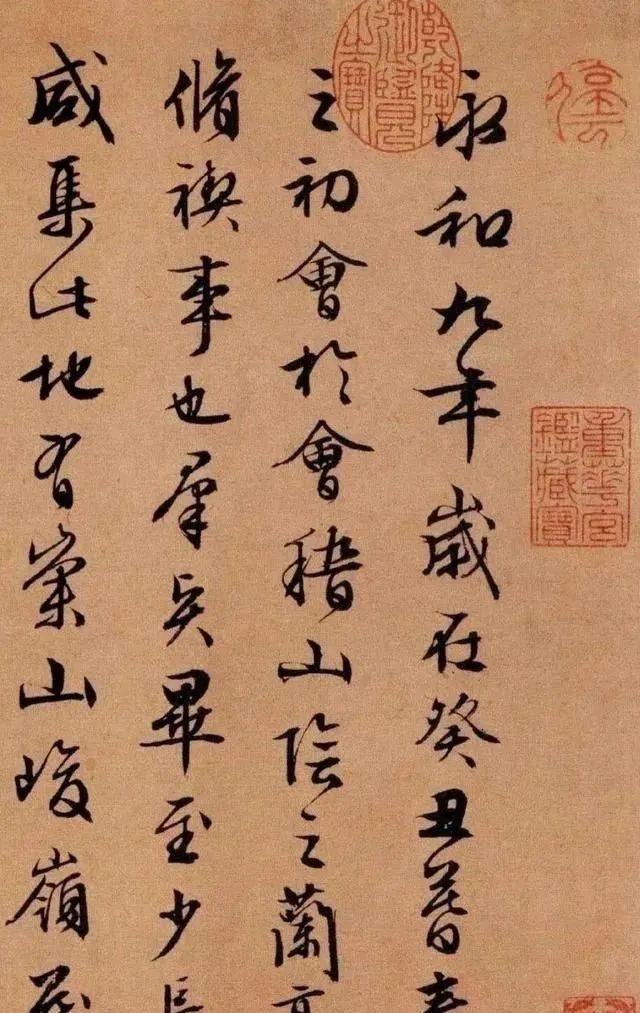 永和九年歲在癸丑暮春
之初會於會稽山陰之蘭亭
脩禊事也羣賢畢至少長
咸集此地有崇山峻嶺
乾隆御覽之寶
重華宮鑑藏寶